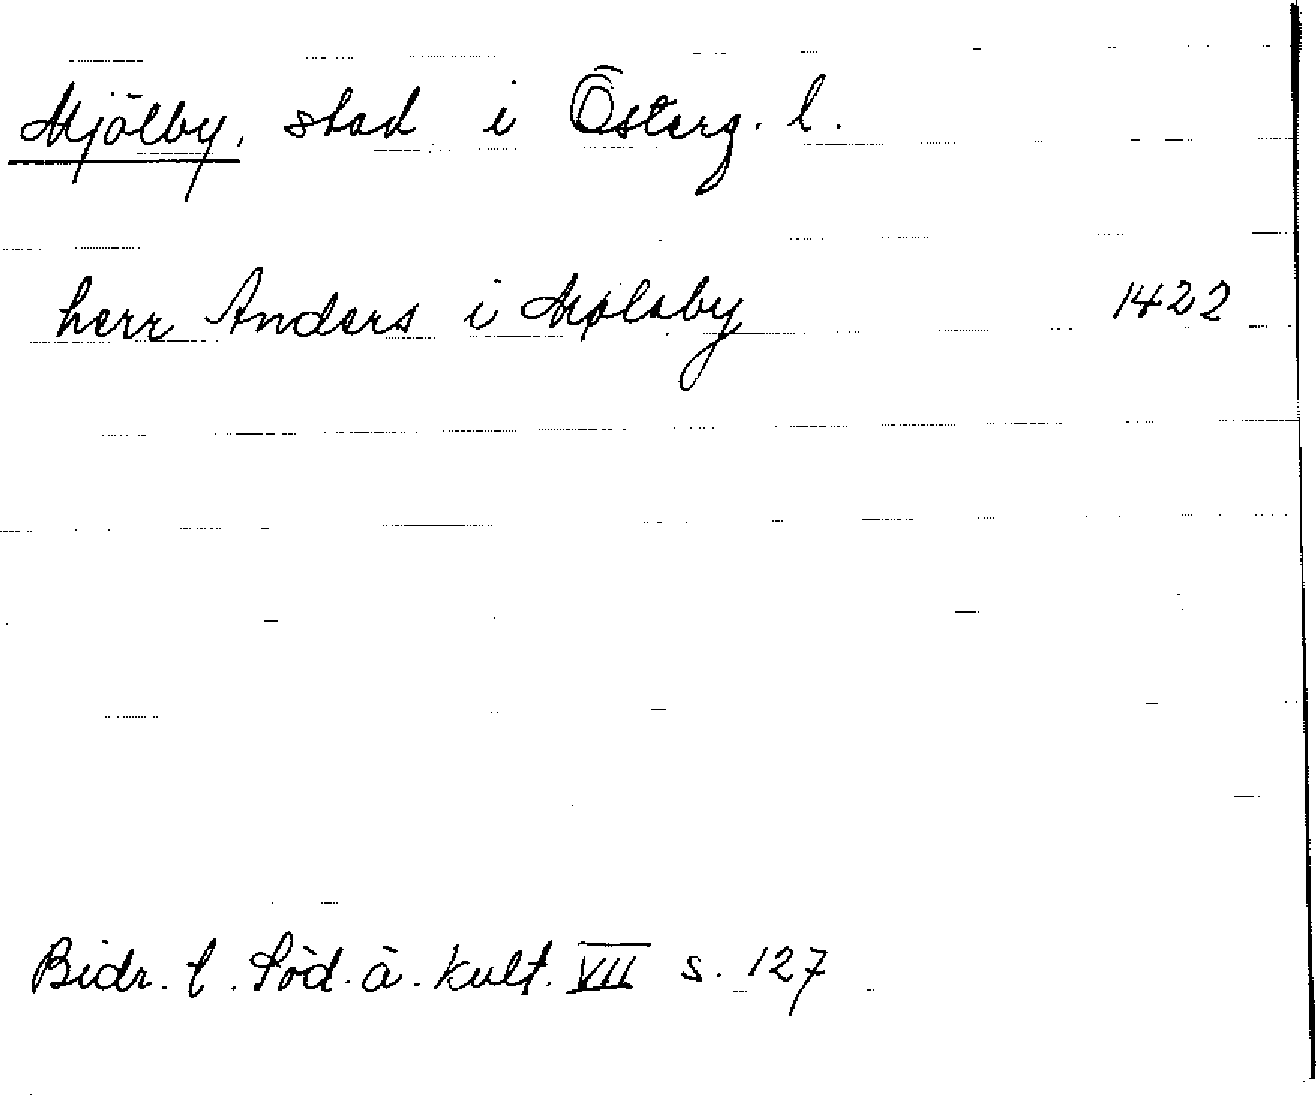 Mjölby, stad i Österg. l.
herr Anders i Mølaby 1422
Bidr. t. Söd. ä. kult. VII s. 127